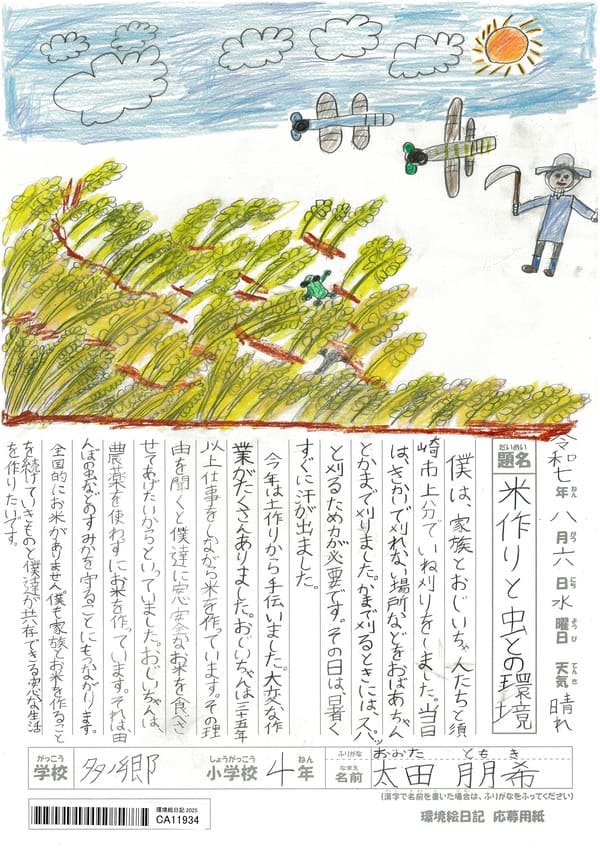 令和七年八月六日水曜日 天気晴れ
ねん がつ にち ようび てんき
だいめい
題名 米作りと虫との環境
僕は、家族とおじいちゃんたちと須
崎市上分でいね刈りをしました。当日
は、きかいで刈れない場所などをおばあちゃん
とかまで刈りました。かまで刈るときには、スパッ
と刈るため力が必要です。その日は、早く
すぐに汗が出ました。
今年は土作りから手伝いました。大変な作
業がたくさんありました。おじいちゃんは三十五年
以上仕事をしながら米を作っています。その理
由を聞くと僕達に安心安全なお米を食べさ
せてあげたいからといっていました。おじいちゃんは、
農薬を使わずにお米を作っています。それは、田
んぼの虫などのすみかを守ることにもつながります。
全国的にお米がありません。僕も家族とお米を作ること
を続けていきものと僕達が共存できる安心な生活
を作りたいです。
がっこう しょうがっこう ねん ふりがな おおた ともき
学校 多ノ郷 小学校 4年 なまえ 名前 太田 朋希
(漢字で名前を書いた場合は、ふりがなをふってください)
環境絵日記 2025
CA11934
環境絵日記 応募用紙